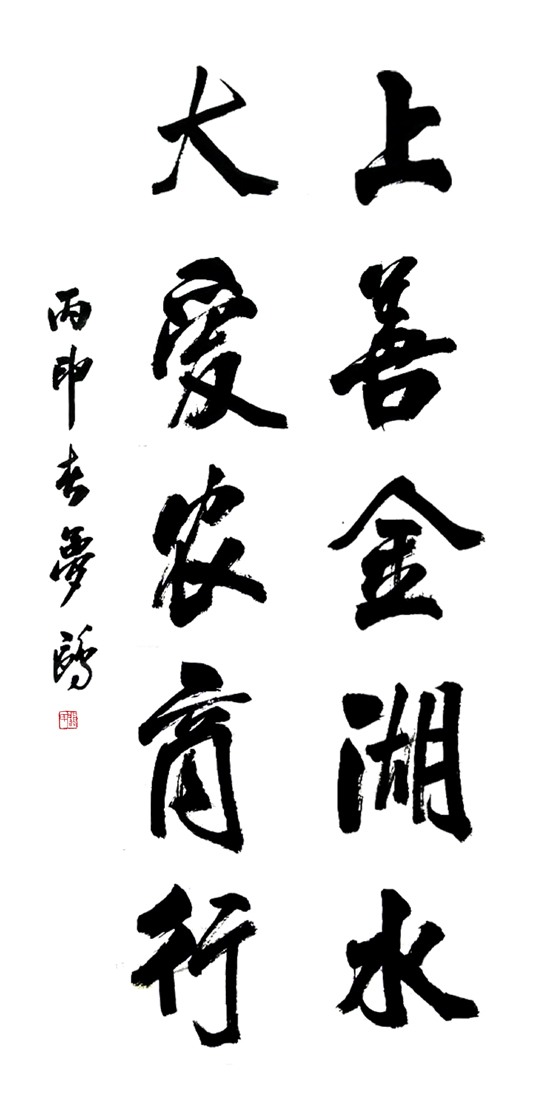 上善金湖水
大爱农商行
丙申春夢鸥